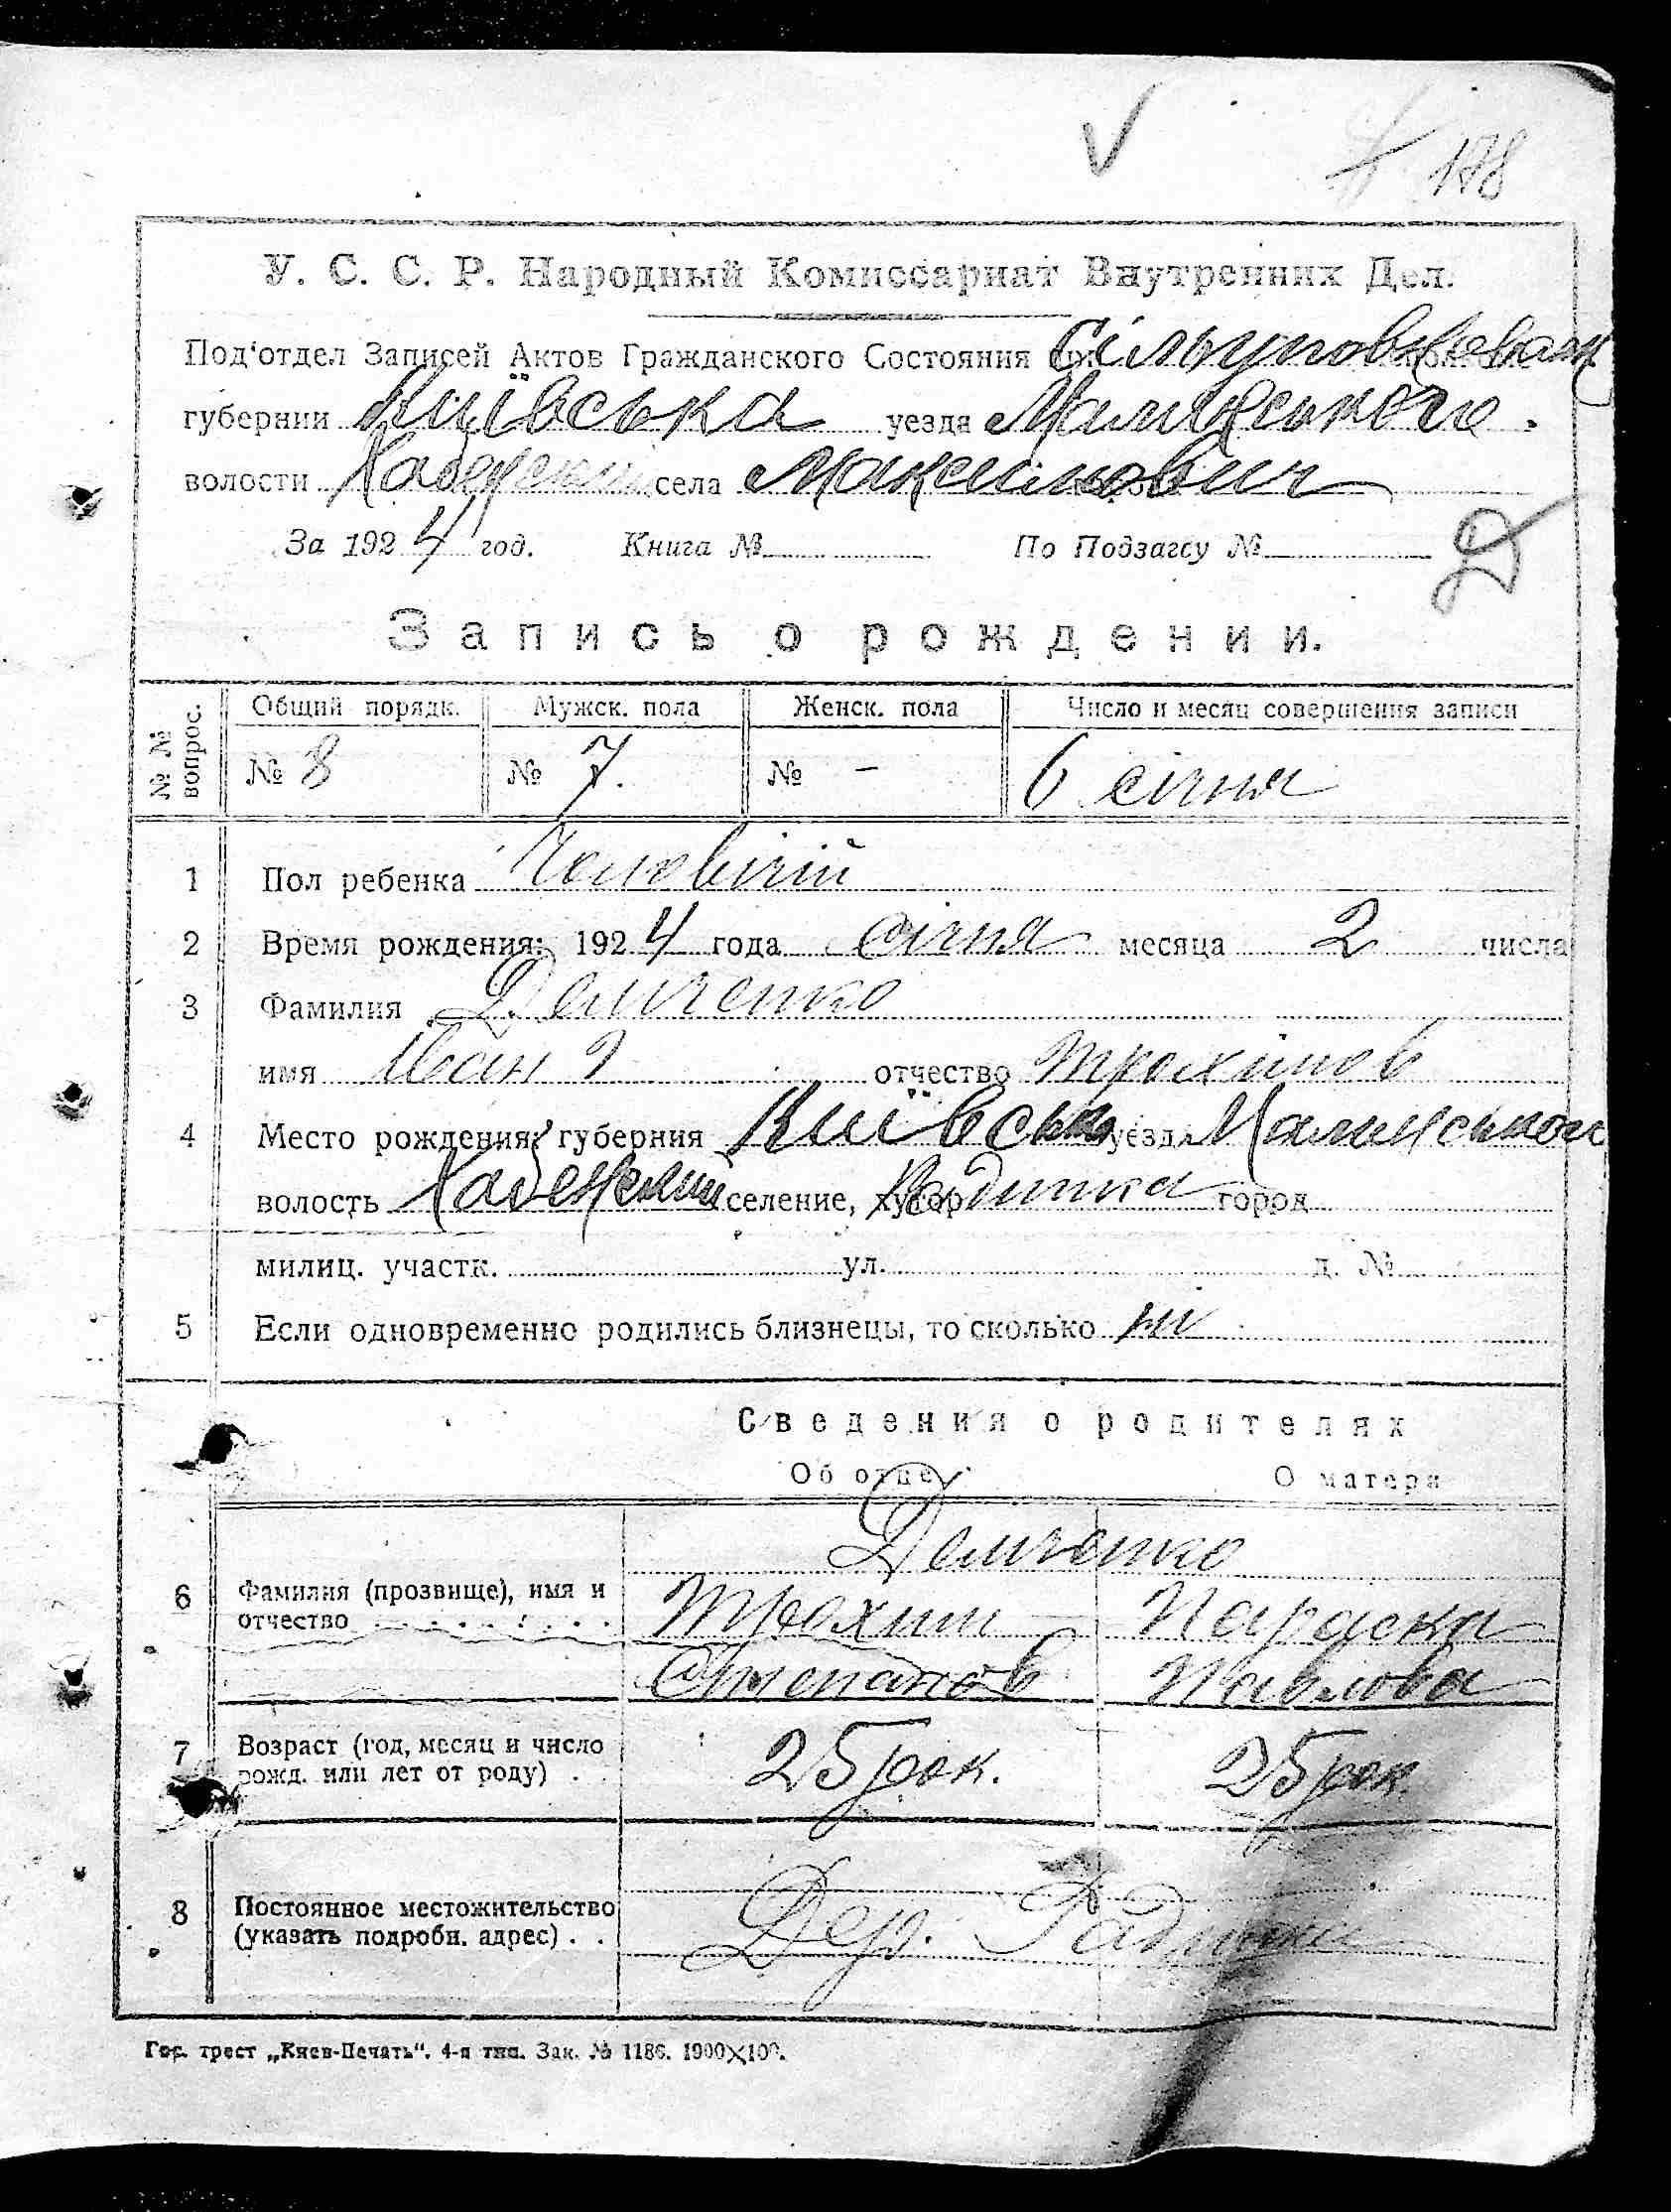 178
У. С. С. Р. Народный Комиссариат Внутренних Дел.
Под'отдел Записей Актов Гражданского Состояния
губернии Київська уезда Малинського
волости села Максимович
За 1924 год. Книга № По Подзагсу №
Запись о рождении.
№ № вопрос. Общий порядк. Мужск. пола Женск. пола Число и месяц совершения записи
№ 8 № 7. № - 6 січня
1 Пол ребенка Чоловічій
2 Время рождения: 1924 года січня месяца 2 числа
3 Фамилия Демченко
имя Іван отчество Трохимов
4 Место рождения: губерния Київська уезд Малинського
волость селение, хутор город
милиц. участк. ул. д. №
5 Если одновременно родились близнецы, то сколько ні
Сведения о родителях
Об отце О матери
Демченко
6 Фамилия (прозвище), имя и Трохим Параска
отчество Степанов Павлова
7 Возраст (год, месяц и число 25 рок. 25 рок.
рожд. или лет от роду)
8 Постоянное местожительство Дер. Радинка
(указать подробн. адрес)
Гос. трест „Киев-Печать". 4-я тип. Зак. № 1186. 1900×100.